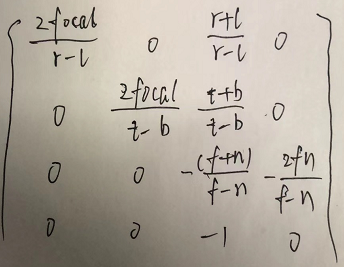 2focal/(r-l) 0 (r+l)/(r-l) 0
0 2focal/(t-b) (t+b)/(t-b) 0
0 0 -(f+n)/(f-n) -2fn/(f-n)
0 0 -1 0